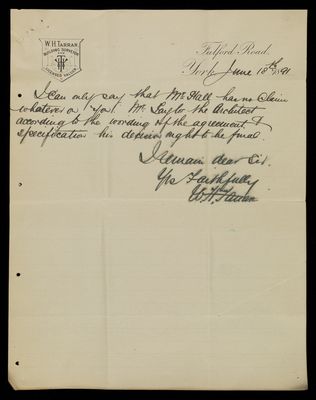 W. H. TARRAN
BUILDING SURVEYOR
AND
LICENSED VALUER
Fulford Road,
York, June 18th 1891
I can only say that Mr Hall has no Claim
whatever on you. Mr the Architect
according to the wording of the agreement &
specification his decision ought to be final
I remain dear Sir.
Yrs Faithfully
W. H. Tarran